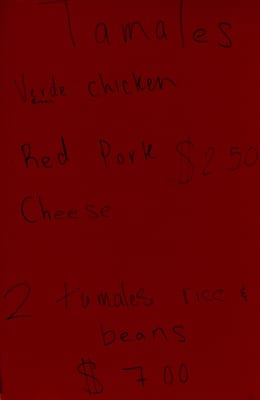 Tamales
Verde chicken
Red Pork $2.50
Cheese
2 tamales rice &
beans
$7.00